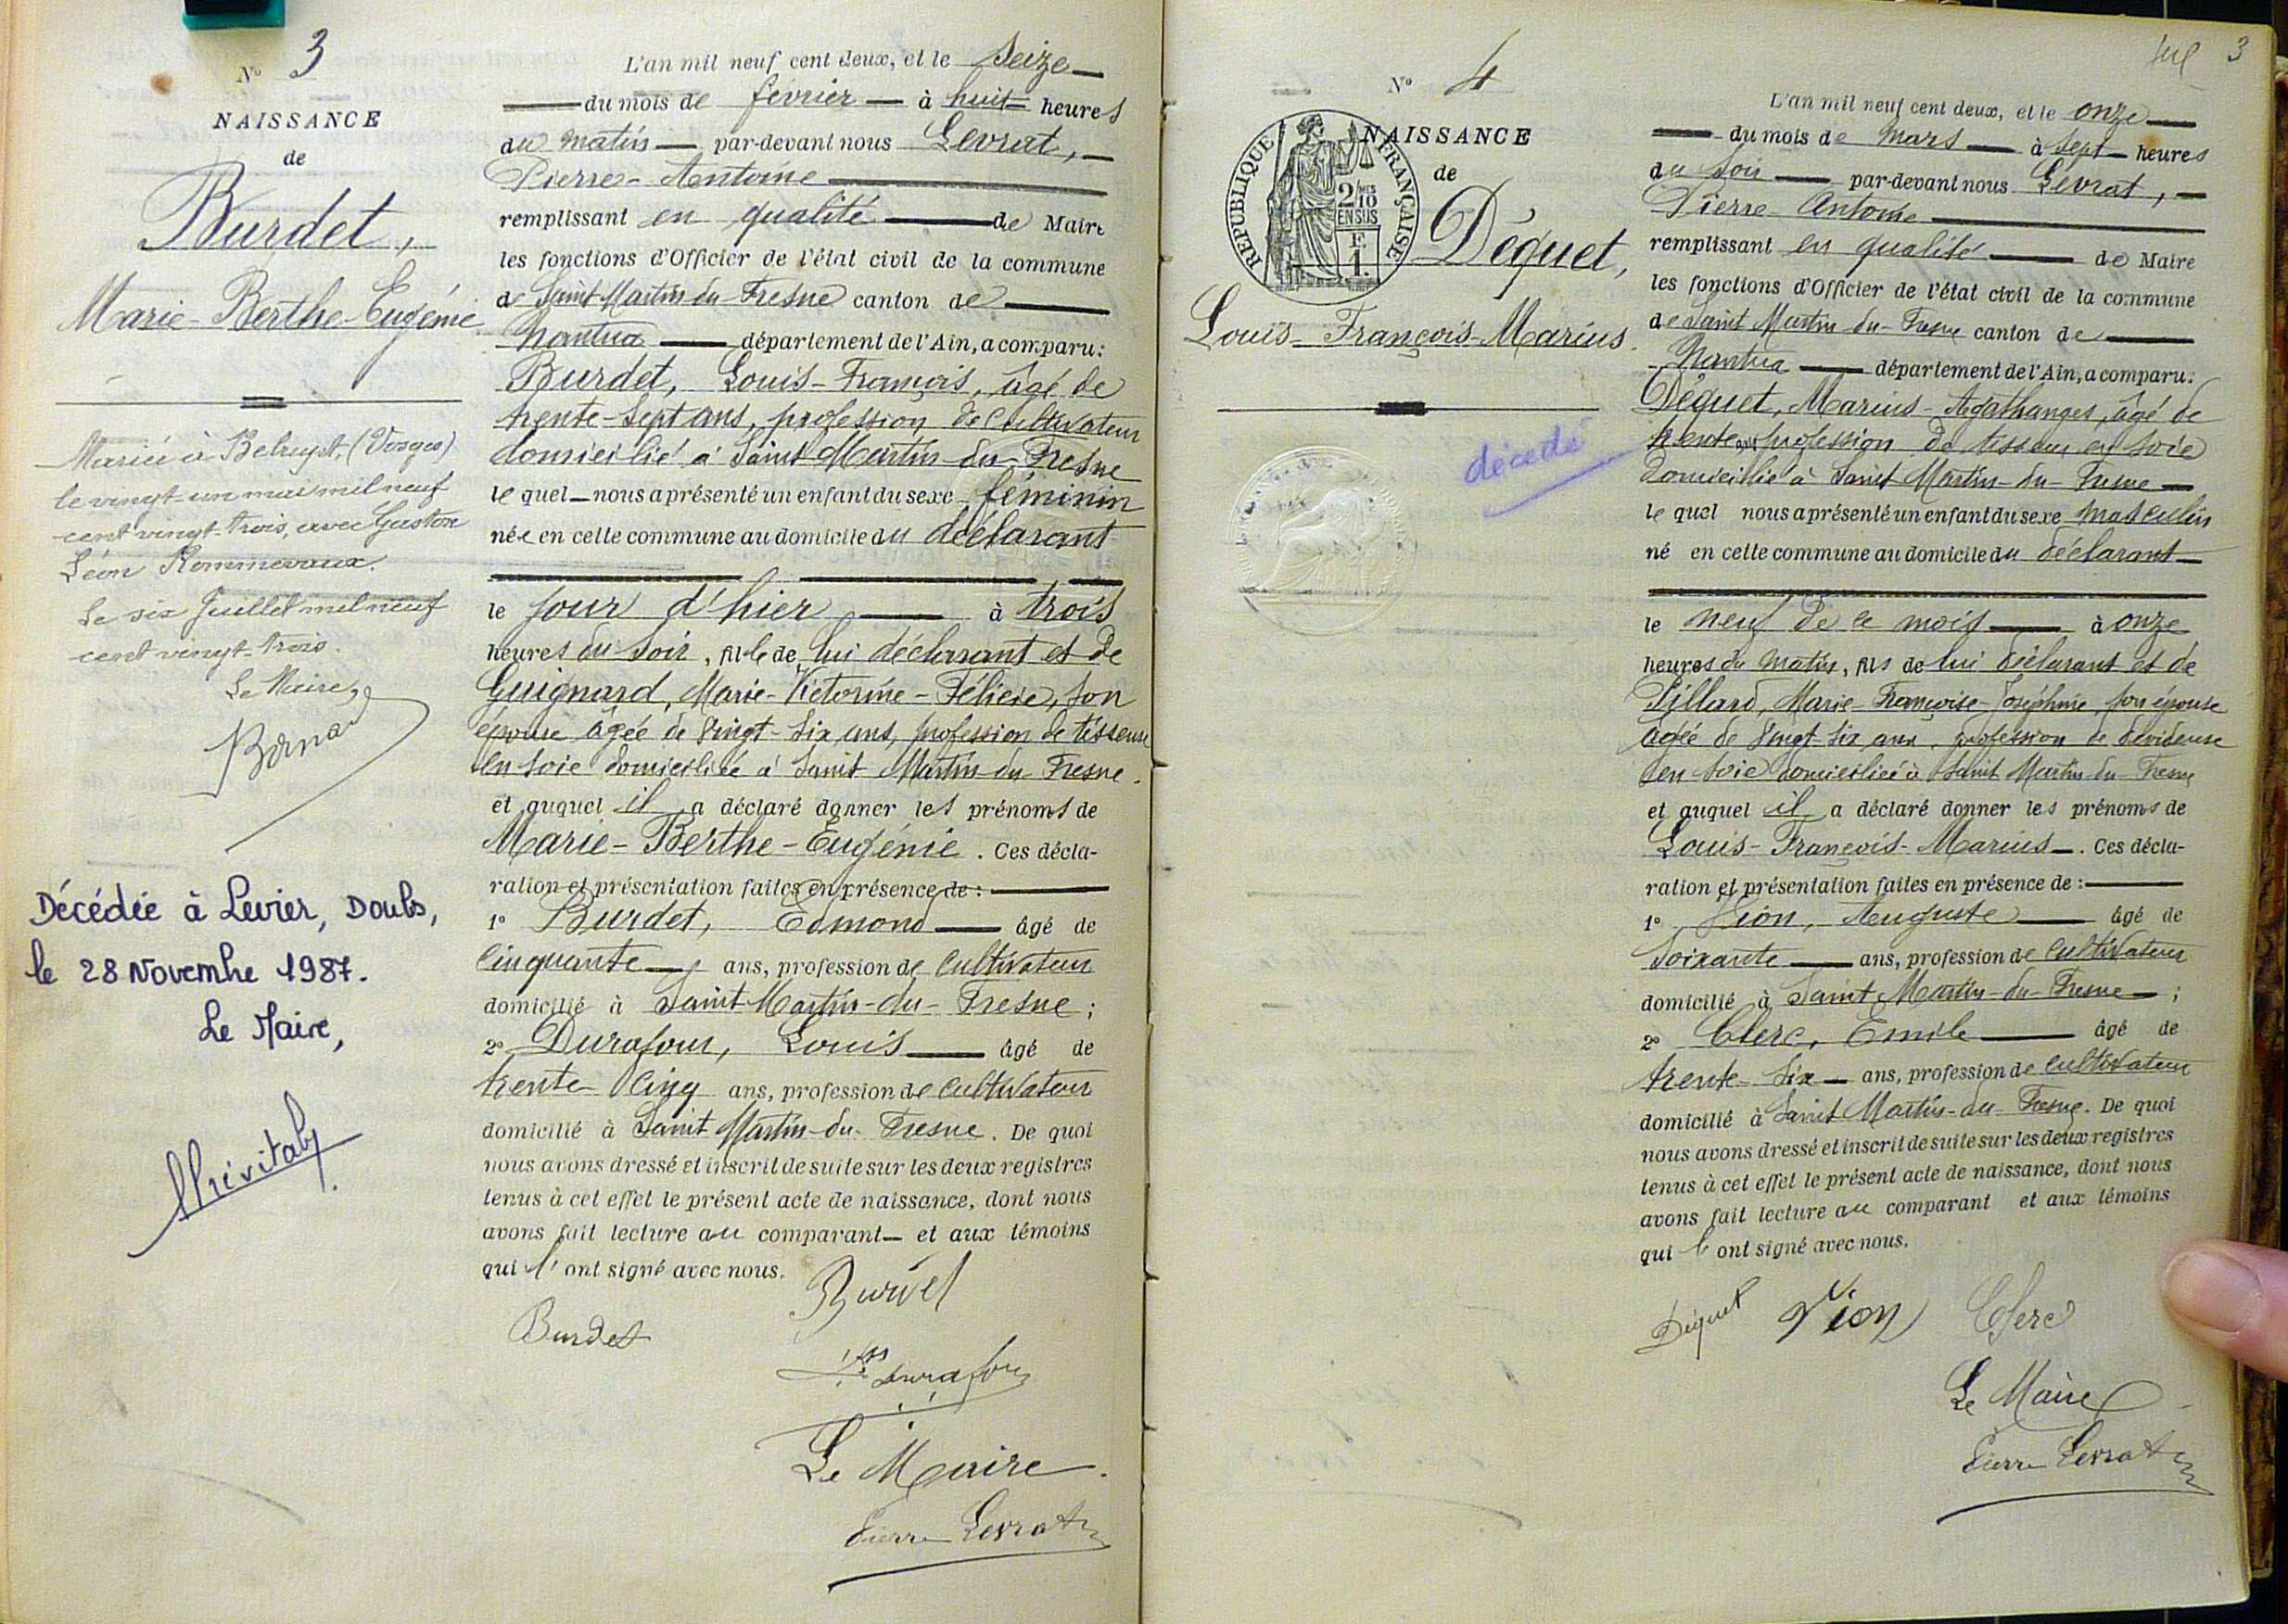 N° 3
NAISSANCE
de
Burdet,
Marie-Berthe-Eugénie
Mariée à Belrupt, (Vosges)
le vingt-un mai mil neuf
cent vingt-trois, avec Gaston
Léon Rommevaux.
Le six Juillet mil neuf
cent vingt-trois.
Le Maire,
Décédée à Levier, Doubs,
le 28 Novembre 1987.
Le Maire,
L'an mil neuf cent deux, et le seize
du mois de février à huit heures
du matin par-devant nous Levrat,
Pierre-Antoine
remplissant en qualité de Maire
les fonctions d'Officier de l'état civil de la commune
de Saint-Martin-du-Fresne canton de
Nantua département de l'Ain, a comparu:
Burdet, Louis-François, âgé de
trente-sept ans, profession de cultivateur
domicilié à Saint-Martin-du-Fresne
lequel nous a présenté un enfant du sexe féminin
née en cette commune au domicile du déclarant
le jour d'hier à trois
heures du soir, fille de lui déclarant et de
Guignard, Marie-Victorine-Félicie, son
épouse âgée de vingt-six ans, profession de tisseuse
en soie domiciliée à Saint Martin-du-Fresne.
et auquel il a déclaré donner les prénoms de
Marie-Berthe-Eugénie. Ces décla-
ration et présentation faites en présence de :
1° Burdet, Edmond âgé de
cinquante ans, profession de cultivateur
domicilié à Saint-Martin-du-Fresne ;
2° Durafour, Louis âgé de
trente-cinq ans, profession de cultivateur
domicilié à Saint Martin-du-Fresne. De quoi
nous avons dressé et inscrit de suite sur les deux registres
tenus à cet effet le présent acte de naissance, dont nous
avons fait lecture au comparant et aux témoins
qui l'ont signé avec nous.
Burdet
Durafour
Le Maire.
Pierre Levrat
3
N° 4
NAISSANCE
de
REPUBLIQUE FRANÇAISE
2/10 MES
EN SUS
F.
1.
Déquet,
Louis-François-Marius.
décédé
L'an mil neuf cent deux, et le onze
du mois de Mars à sept heures
du soir par-devant nous Levrat,
Pierre Antoine
remplissant en qualité de Maire
les fonctions d'Officier de l'état civil de la commune
de Saint Martin-du-Fresne canton de
Nantua département de l'Ain, a comparu:
Déquet, Marius-Agathanges, âgé de
trente ans, profession de tisseur en soie
domicilié à Saint Martin-du-Fresne
lequel nous a présenté un enfant du sexe masculin
né en cette commune au domicile du déclarant
le neuf de ce mois à onze
heures du matin, fils de lui déclarant et de
Pillard, Marie-Françoise-Joséphine, son épouse
âgée de vingt-six ans, profession de dévideuse
en soie domiciliée à Saint Martin-du-Fresne
et auquel il a déclaré donner les prénoms de
Louis-François-Marius. Ces décla-
ration et présentation faites en présence de :
1° Vion, Auguste âgé de
soixante ans, profession de cultivateur
domicilié à Saint Martin-du-Fresne ;
2° Clerc, Emile âgé de
trente-six ans, profession de cultivateur
domicilié à Saint Martin-du-Fresne. De quoi
nous avons dressé et inscrit de suite sur les deux registres
tenus à cet effet le présent acte de naissance, dont nous
avons fait lecture au comparant et aux témoins
qui l'ont signé avec nous.
Déquet Vion Clerc
Le Maire
Pierre Levrat